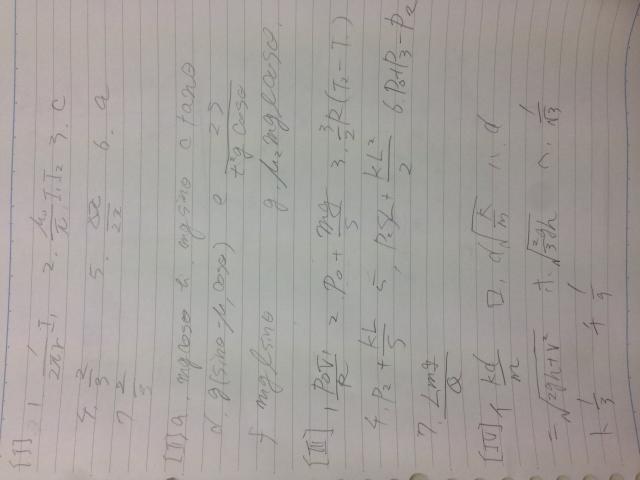 [I] 1 \frac{1}{2πr} I_1 2. \frac{μ_0}{π} I_1 I_2 3. C
4. \frac{2}{3} 5. \frac{}{2x} 6. a
7 \frac{2}{3}
[II] a. mg cosθ b. mg sinθ c tanθ
d. g(sinθ-μ, cosθ) e \frac{2S}{t²g cosθ}
f mglsinθ g. μ_2 mgl cosθ
[III] 1 \frac{P_0 V_1}{R} 2. P_0 + \frac{mg}{S} 3. \frac{3}{2} R (T_2 - T_1)
4. P_2 + \frac{kL}{S} 5, + \frac{kL²}{2} 6. P_0 + P_3 - P_2
7.
[IV] イ \frac{kd}{m} ロ. d\sqrt{\frac{k}{m}} ハ. d
ニ \sqrt{2gh+V²} ホ. \sqrt{\frac{2}{3}gh} ヘ. \frac{1}{\sqrt{3}}
ト \frac{1}{3} チ \frac{1}{9}